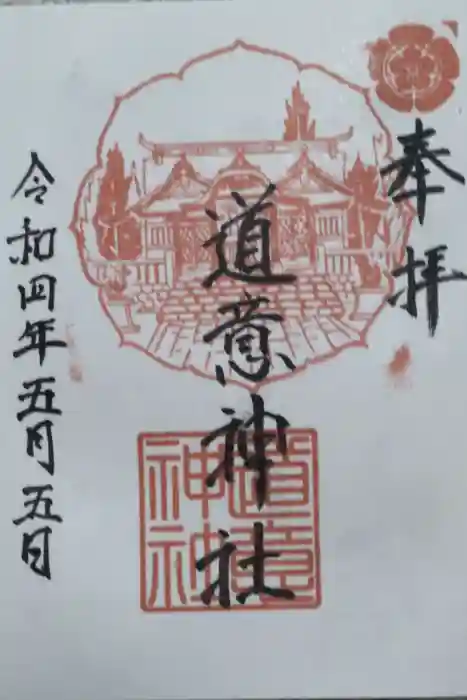 奉拝
道意神社
道意
神社
令和四年五月五日